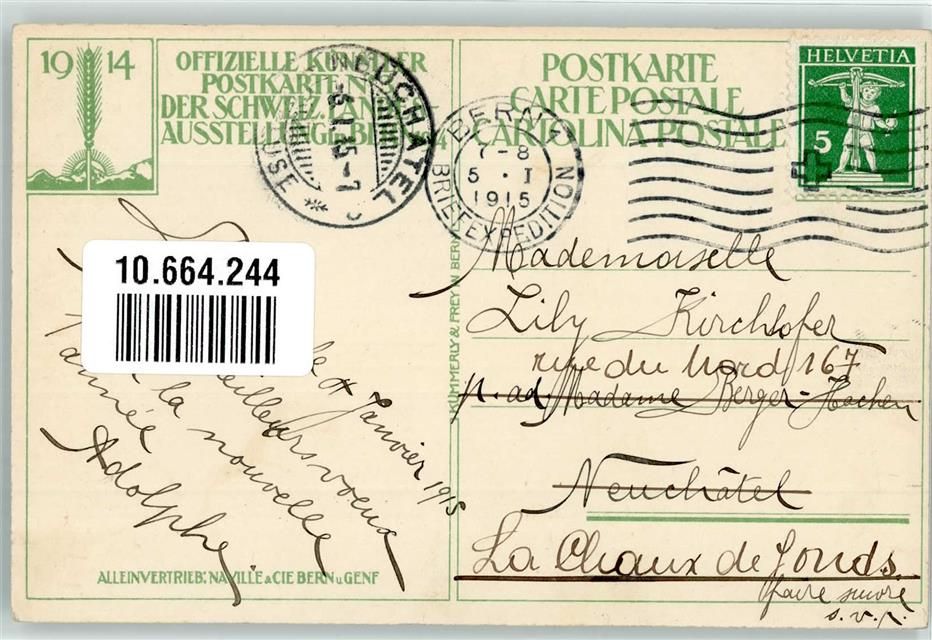 1914
OFFIZIELLE KÜNSTLER
POSTKARTEN
DER SCHWEIZ. LANDES-
AUSSTELLUNG BERN 1914
POSTKARTE
CARTE POSTALE
CARTOLINA POSTALE
HELVETIA
5
NEUCHÂTEL
BERN
7-8
5 · I
1915
BRIEFEXPEDITION
10.664.244
le 4 Janvier 1915
Meilleurs voeux
à la nouvelle
année
Adolphe
KÜMMERLY & FREY IN BERN
Mademoiselle
Lily Kirchhofer
rue du Nord 167
p. ad. Madame Berger-Hachen
Neuchâtel
La Chaux de Fonds
faire suivre
s.v.p.
ALLEINVERTRIEB: NAVILLE & CIE BERN U. GENF